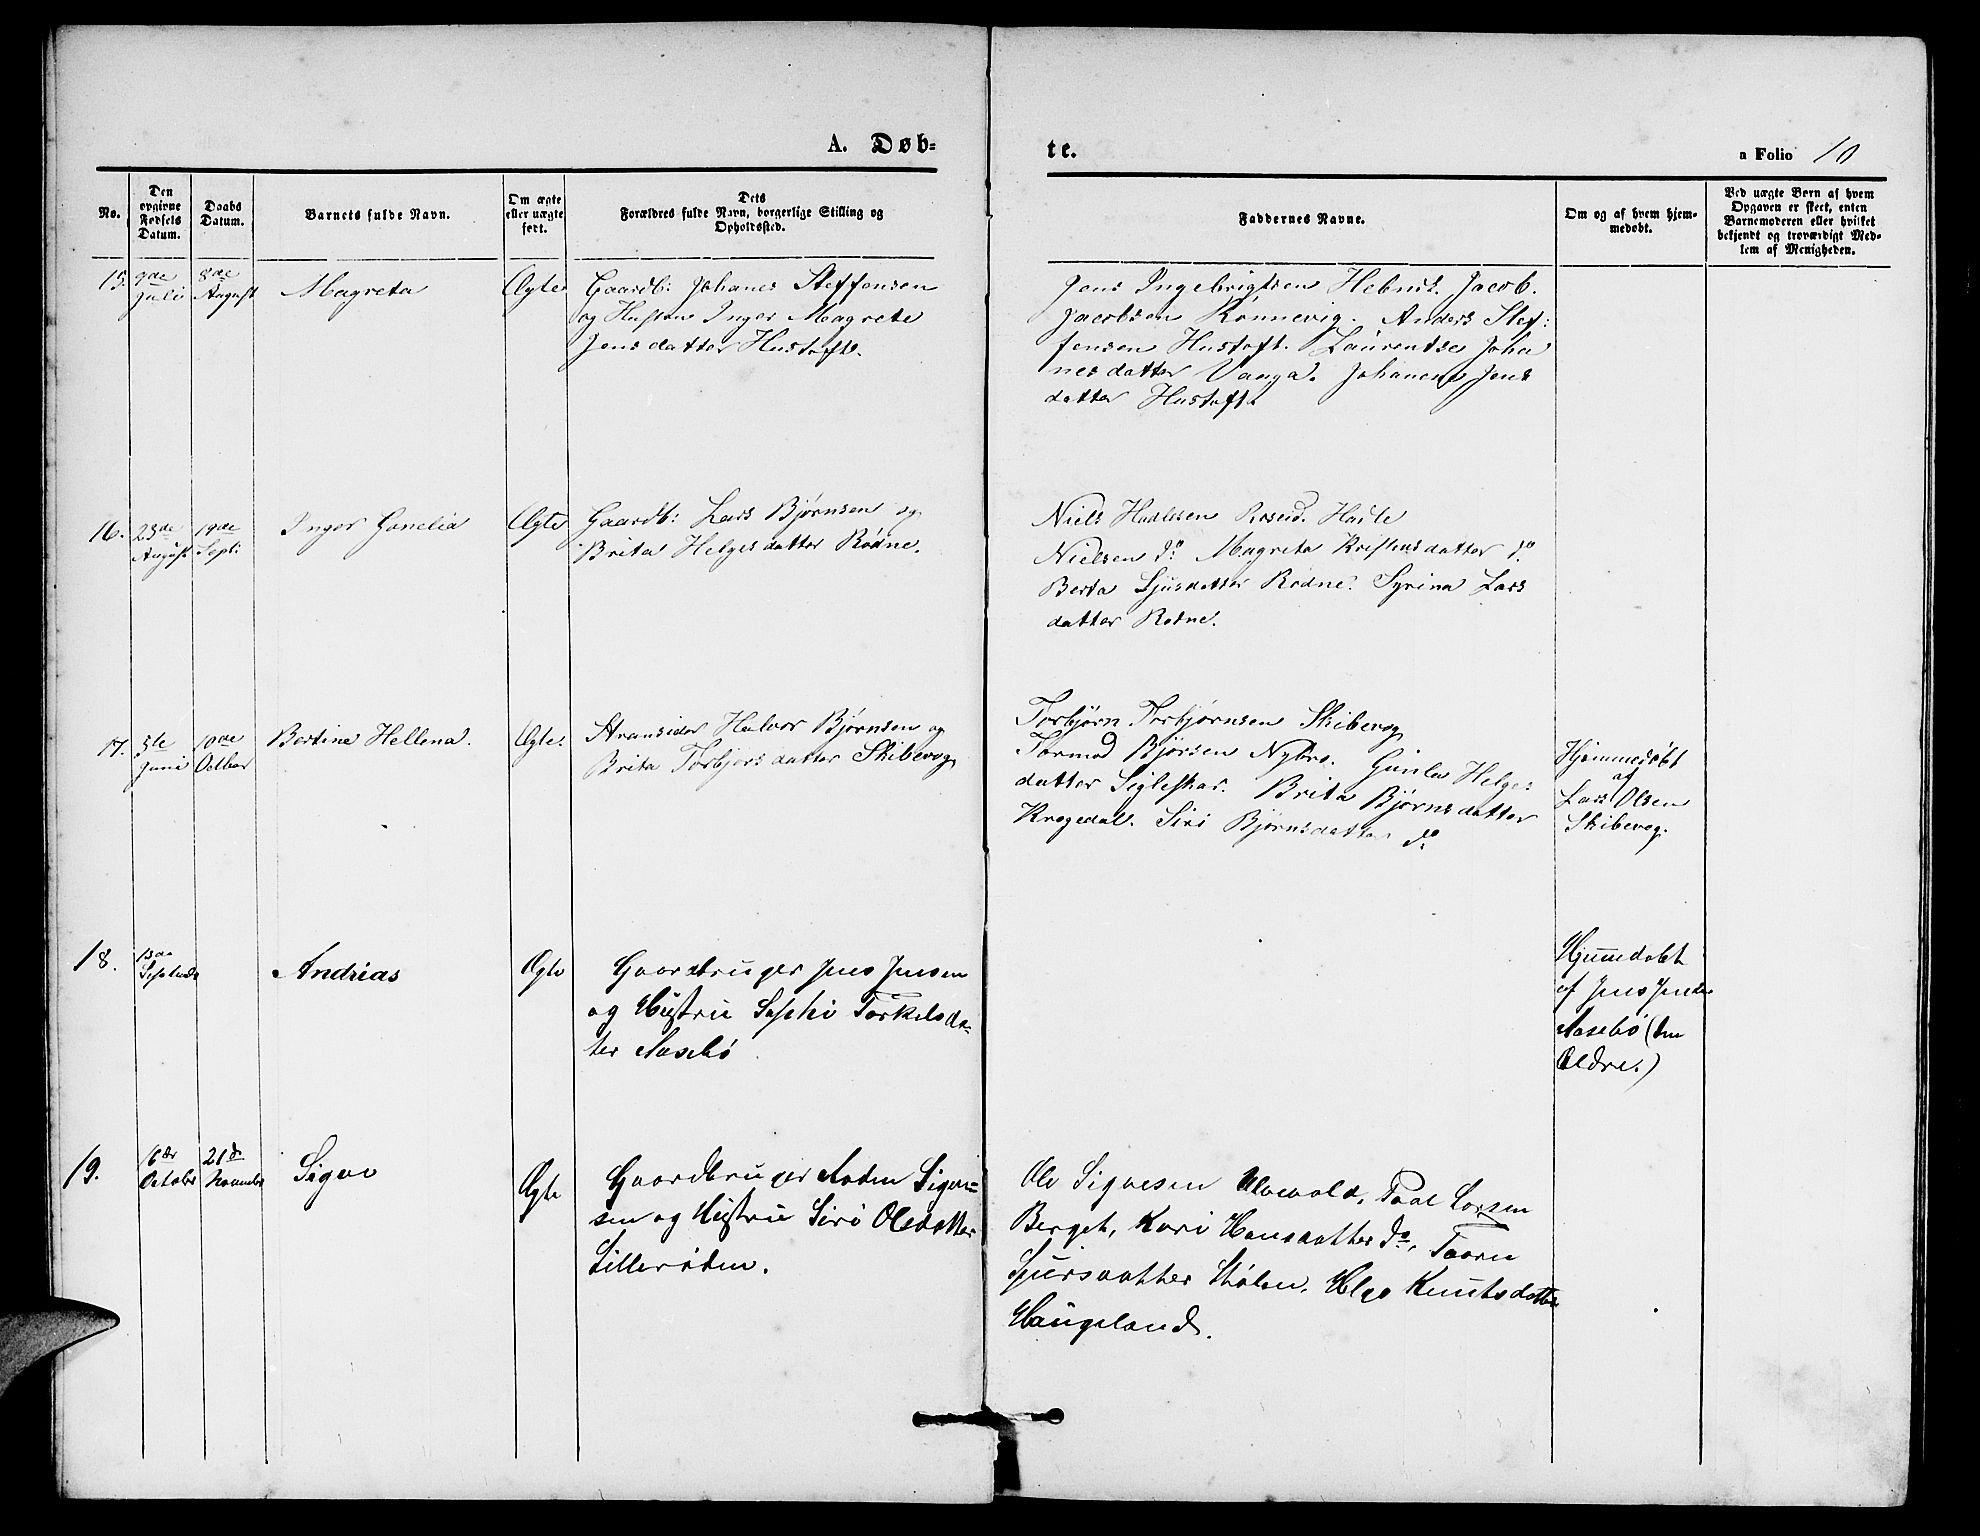 A. Døb-
te.
a Folio 10
No.
Den
opgivne
Fødsels
Datum.
Daabs
Datum.
Barnets fulde Navn.
Om ægte
eller uægte
født.
Dets
Forældres fulde Navn, borgerlige Stilling og
Opholdssted.
Faddernes Navne.
Om og af hvem hjem-
medøbt.
Ved uægte Børn af hvem
Opgaven er skeet, enten
Barnemoderen eller hvilket
bekjendt og troværdigt Med-
lem af Menigheden.
15.
9de
Juli
8de
August
Magreta
Ægte
Gaardb: Johanes Steffensen
og Hustru Inger Magrete
Jensdatter Hustoft.
Jens Ingebrigtsen Hebnes. Jacob.
Jacobsen Rönnevig. Anders Stef:
fensen Hustoft. Laurentse Joha
nesdatter Vaaga. Johanene Jens
datter Hustoft.
16.
23de
August
19de
Sept:
Inger Gonelia
Ægte
Gaardb: Lars Bjørnsen og
Brita Helgesdatter Rødne.
Niels Hadlesen Roseid. Hadle
Nielsen do. Magreta Kristensdatter do.
Berta Sjursdatter Rødne. Syrina Lars
datter Rødne.
17.
5te
Juni
10de
Octbar
Bertine Hellena.
Ægte.
Stransider Halvor Bjørnsen og
Brita Torbjorsdatter Skibevog
Torbjörn Torbjørnsen Skibevog
Tormod Bjørsen Nybro. Gunla Helges
datter Sigleskar. Brita Bjørnsdatter
Krogedal. Siri Bjørnsdatter do
Hjemmedøbt
af
Lars Olsen
Skibevog.
18.
13de
Septemb
Andrias
Ægte
Gaardbruger Jens Jensen
og Hustru Sophi Torkilsda-
ter Aasebø
Hjemmedøbt
af Jens Jensen
Aasebø (den
Ældre.)
19.
16de
October
21de
November
Sigve
Ægte
Gaardbruger Aaden Sigve-
sen og Hustru Siri Olsdatter
Lilleröden.
Ole Sigvesen Ulvevold, Paal Larsen
Berget, Kari Hansdatter do, Taaru
Sjursdatter Stølen, Helge Knutsdatter
Haugeland.